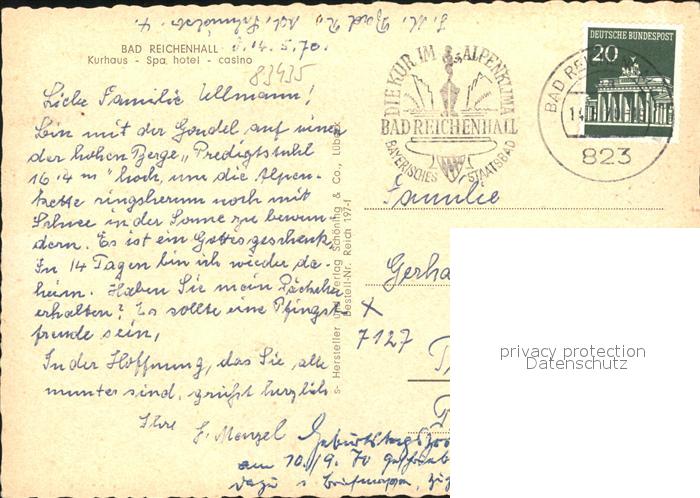 BAD REICHENHALL d. 14.5.70.
Kurhaus - Spa hotel - casino
83435
Liebe Familie Ullmann!
Bin mit der Gondel auf einen
der hohen Berge „Predigtstuhl
16·4 m" hoch, um die Alpen-
kette ringsherum noch mit
Schnee in der Sonne zu bewun
dern. Es ist ein Gottesgeschenk.
In 14 Tagen bin ich wieder da-
heim. Haben Sie mein Päckchen
erhalten? Es sollte eine Pfingst
freude sein,
In der Hoffnung, das Sie alle
munter sind, grüßt herzlich
Ihre
Menzel
Geburtstags
am 10./9. 70
dazu
s- Hersteller und Verlag Schöning & Co., Lübeck
Bestell-Nr. Reich 197-f
DIE KUR IM ALPENKLIMA
BAD REICHENHALL
BAYERISCHES STAATSBAD
DEUTSCHE BUNDESPOST
20
BAD REI
14
823
Familie
Gerha
X
7127
privacy protection
Datenschutz